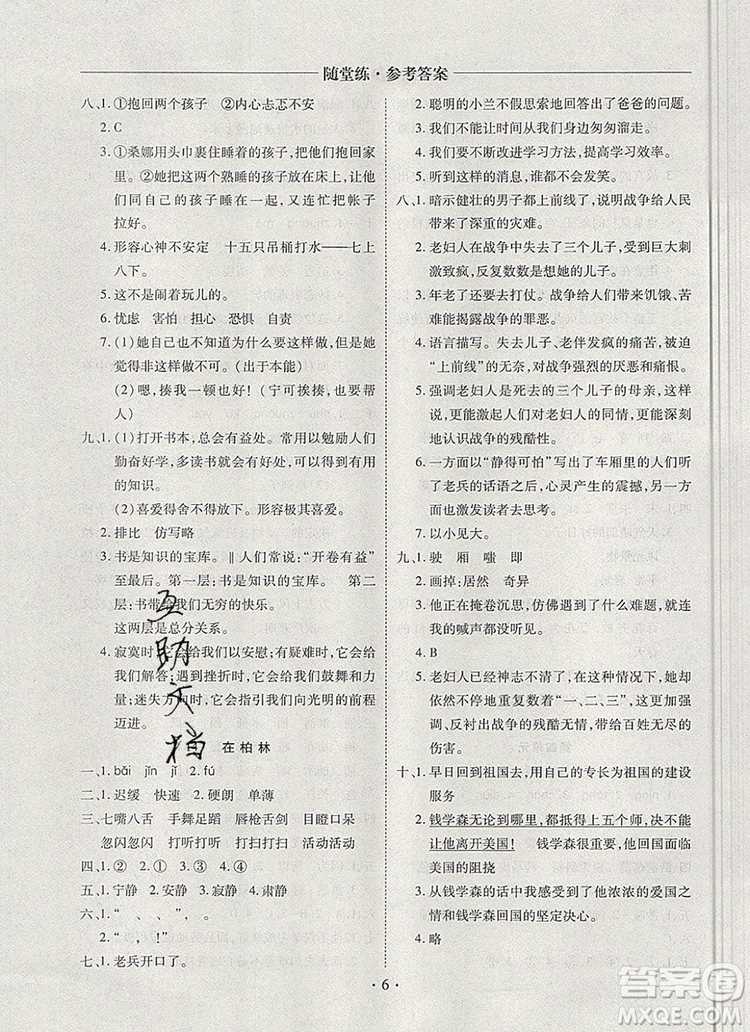 随堂练·参考答案
八、1. ①抱回两个孩子　②内心忐忑不安
2. C
3. ①桑娜用头巾裹住睡着的孩子,把他们抱回家
里。②她把这两个熟睡的孩子放在床上,让他
们同自己的孩子睡在一起,又连忙把帐子
拉好。
4. 形容心神不安定　十五只吊桶打水——七上
八下。
5. 这不是闹着玩儿的。
6. 忧虑　害怕　担心　恐惧　自责
7. (1)她自己也不知道为什么要这样做,但是她
觉得非这样做不可。(出于本能)
(2)嗯,挨揍也行,那也是活该。(宁可挨揍,也要帮
人)
九、1. (1)打开书本,总会有益处。常用以勉励人们
勤奋好学,多读书就会有收获,能得到更多有用
的知识。
(2)喜爱得舍不得放下。形容极其喜爱。
2. 排比　仿写略
3. 书是知识的宝库。‖人们常说:“开卷有益”
至最后。第一层:书是知识的宝库。　第二
层:书带给我们无穷的快乐。
这两层是总分关系。
4. 寂寞时它会给我们以安慰;有疑难时,它会给
我们解答;遇到挫折时,它会给我们鼓舞和力
量;迷失方向时,它会指引我们向光明的前程
迈进。
在柏林
一、1. bǎi　jīn　jī　2. fú
二、1. 迟缓　快速　2. 硬朗　单薄
三、七嘴八舌　手舞足蹈　唇枪舌剑　目瞪口呆
忽闪忽闪　打听打听　打扫打扫　活动活动
四、1. ②　2. ①　3. ①　4. ②
五、1. 宁静　2. 安静　3. 寂静　4. 肃静
六、1. “　、　、　”,　。
2. “　,　!　”
七、1. 老兵开口了。
2. 聪明的小兰不假思索地回答出了爸爸的问题。
3. 我们不能让时间从我们身边匆匆溜走。
4. 我们要不断改进学习方法,提高学习效率。
5. 听到这样的消息,谁都不会发笑。
八、1. 暗示健壮的男子都上前线了,说明战争给人民
带来了深重的灾难。
2. 老妇人在战争中失去了三个儿子,受到巨大刺
激致疯,反复数数是想她的儿子。
3. 年老了还要去打仗。战争给人们带来饥饿、苦
难,能揭露战争的罪恶。
4. 语言描写。失去儿子、老伴发疯的痛苦,自己被
逼“上前线”的无奈,对战争强烈的厌恶和痛恨。
5. 强调老妇人是死去的三个儿子的母亲,这样
写,更能引起人们对老妇人的同情,更能深刻
地认识战争的残酷性。
6. 一方面以“静得可怕”写出了车厢里的人们听
了老兵的话语之后,心灵产生的震撼,另一方
面也激发读者去思考。
7. 以小见大。
九、1. 驶　厢　嗤　即
2. 画掉:居然　奇异
3. 他正在掩卷沉思,仿佛遇到了什么难题,连我
的喊声都没听见。
4. B
5. 老妇人已经神志不清了,在这种情况下,她却
依然不停地重复数着“一、二、三”,这就更能突
出、反衬出战争的残酷无情和给人们带来的
伤害。
十、1. 早日回到祖国去,用自己的专长为祖国的建设
服务
2. 钱学森无论到哪里,都抵得上五个师,决不能
让他离开美国!　钱学森的原因　他回国面临
美国的阻挠
3. 从钱学森的话中我感受到了他浓浓的爱国之
情和钱学森回国的坚定决心。
4. 略
互助文档
·6·
答案圈
MXQE.COM